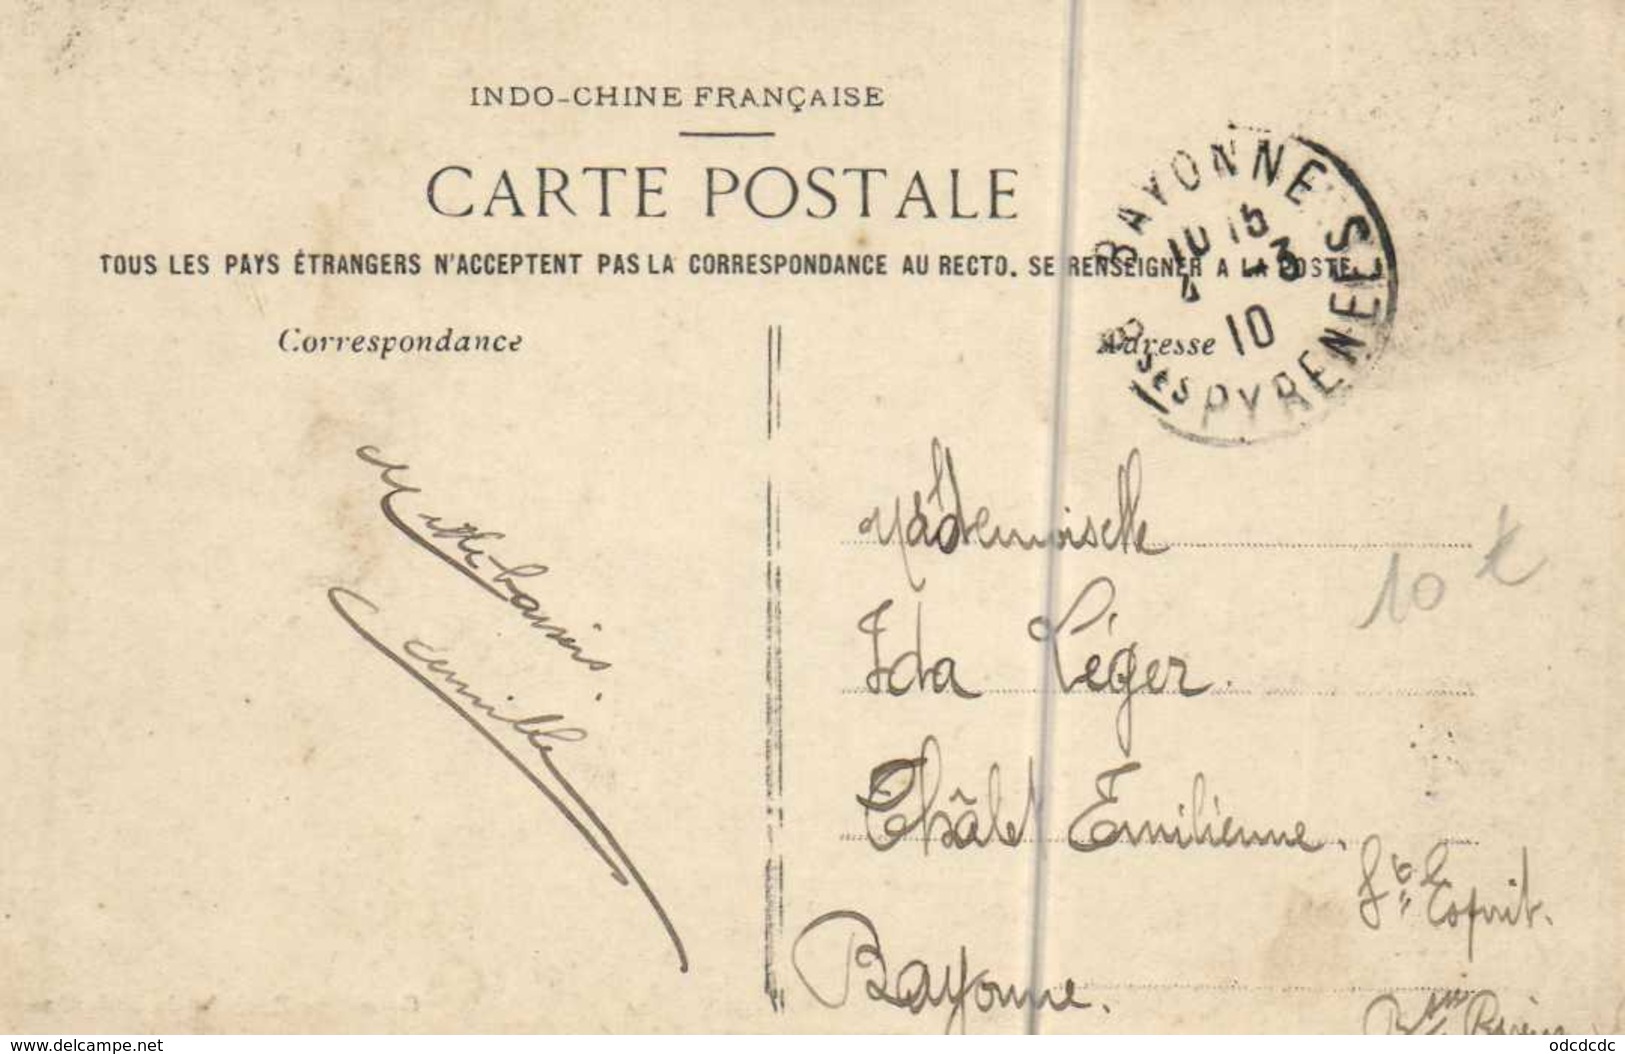 INDO-CHINE FRANÇAISE
CARTE POSTALE
TOUS LES PAYS ÉTRANGERS N'ACCEPTENT PAS LA CORRESPONDANCE AU RECTO. SE RENSEIGNER A LA POSTE
Correspondance
Adresse
BAYONNE
10 15
4 -3
10
Bses PYRENEES
Mille baisers.
Camille
Mademoiselle
Ida Léger.
Châlet Emilienne.
St Esprit.
Bayonne.
10 €
Delcampe.net
odcdcdc